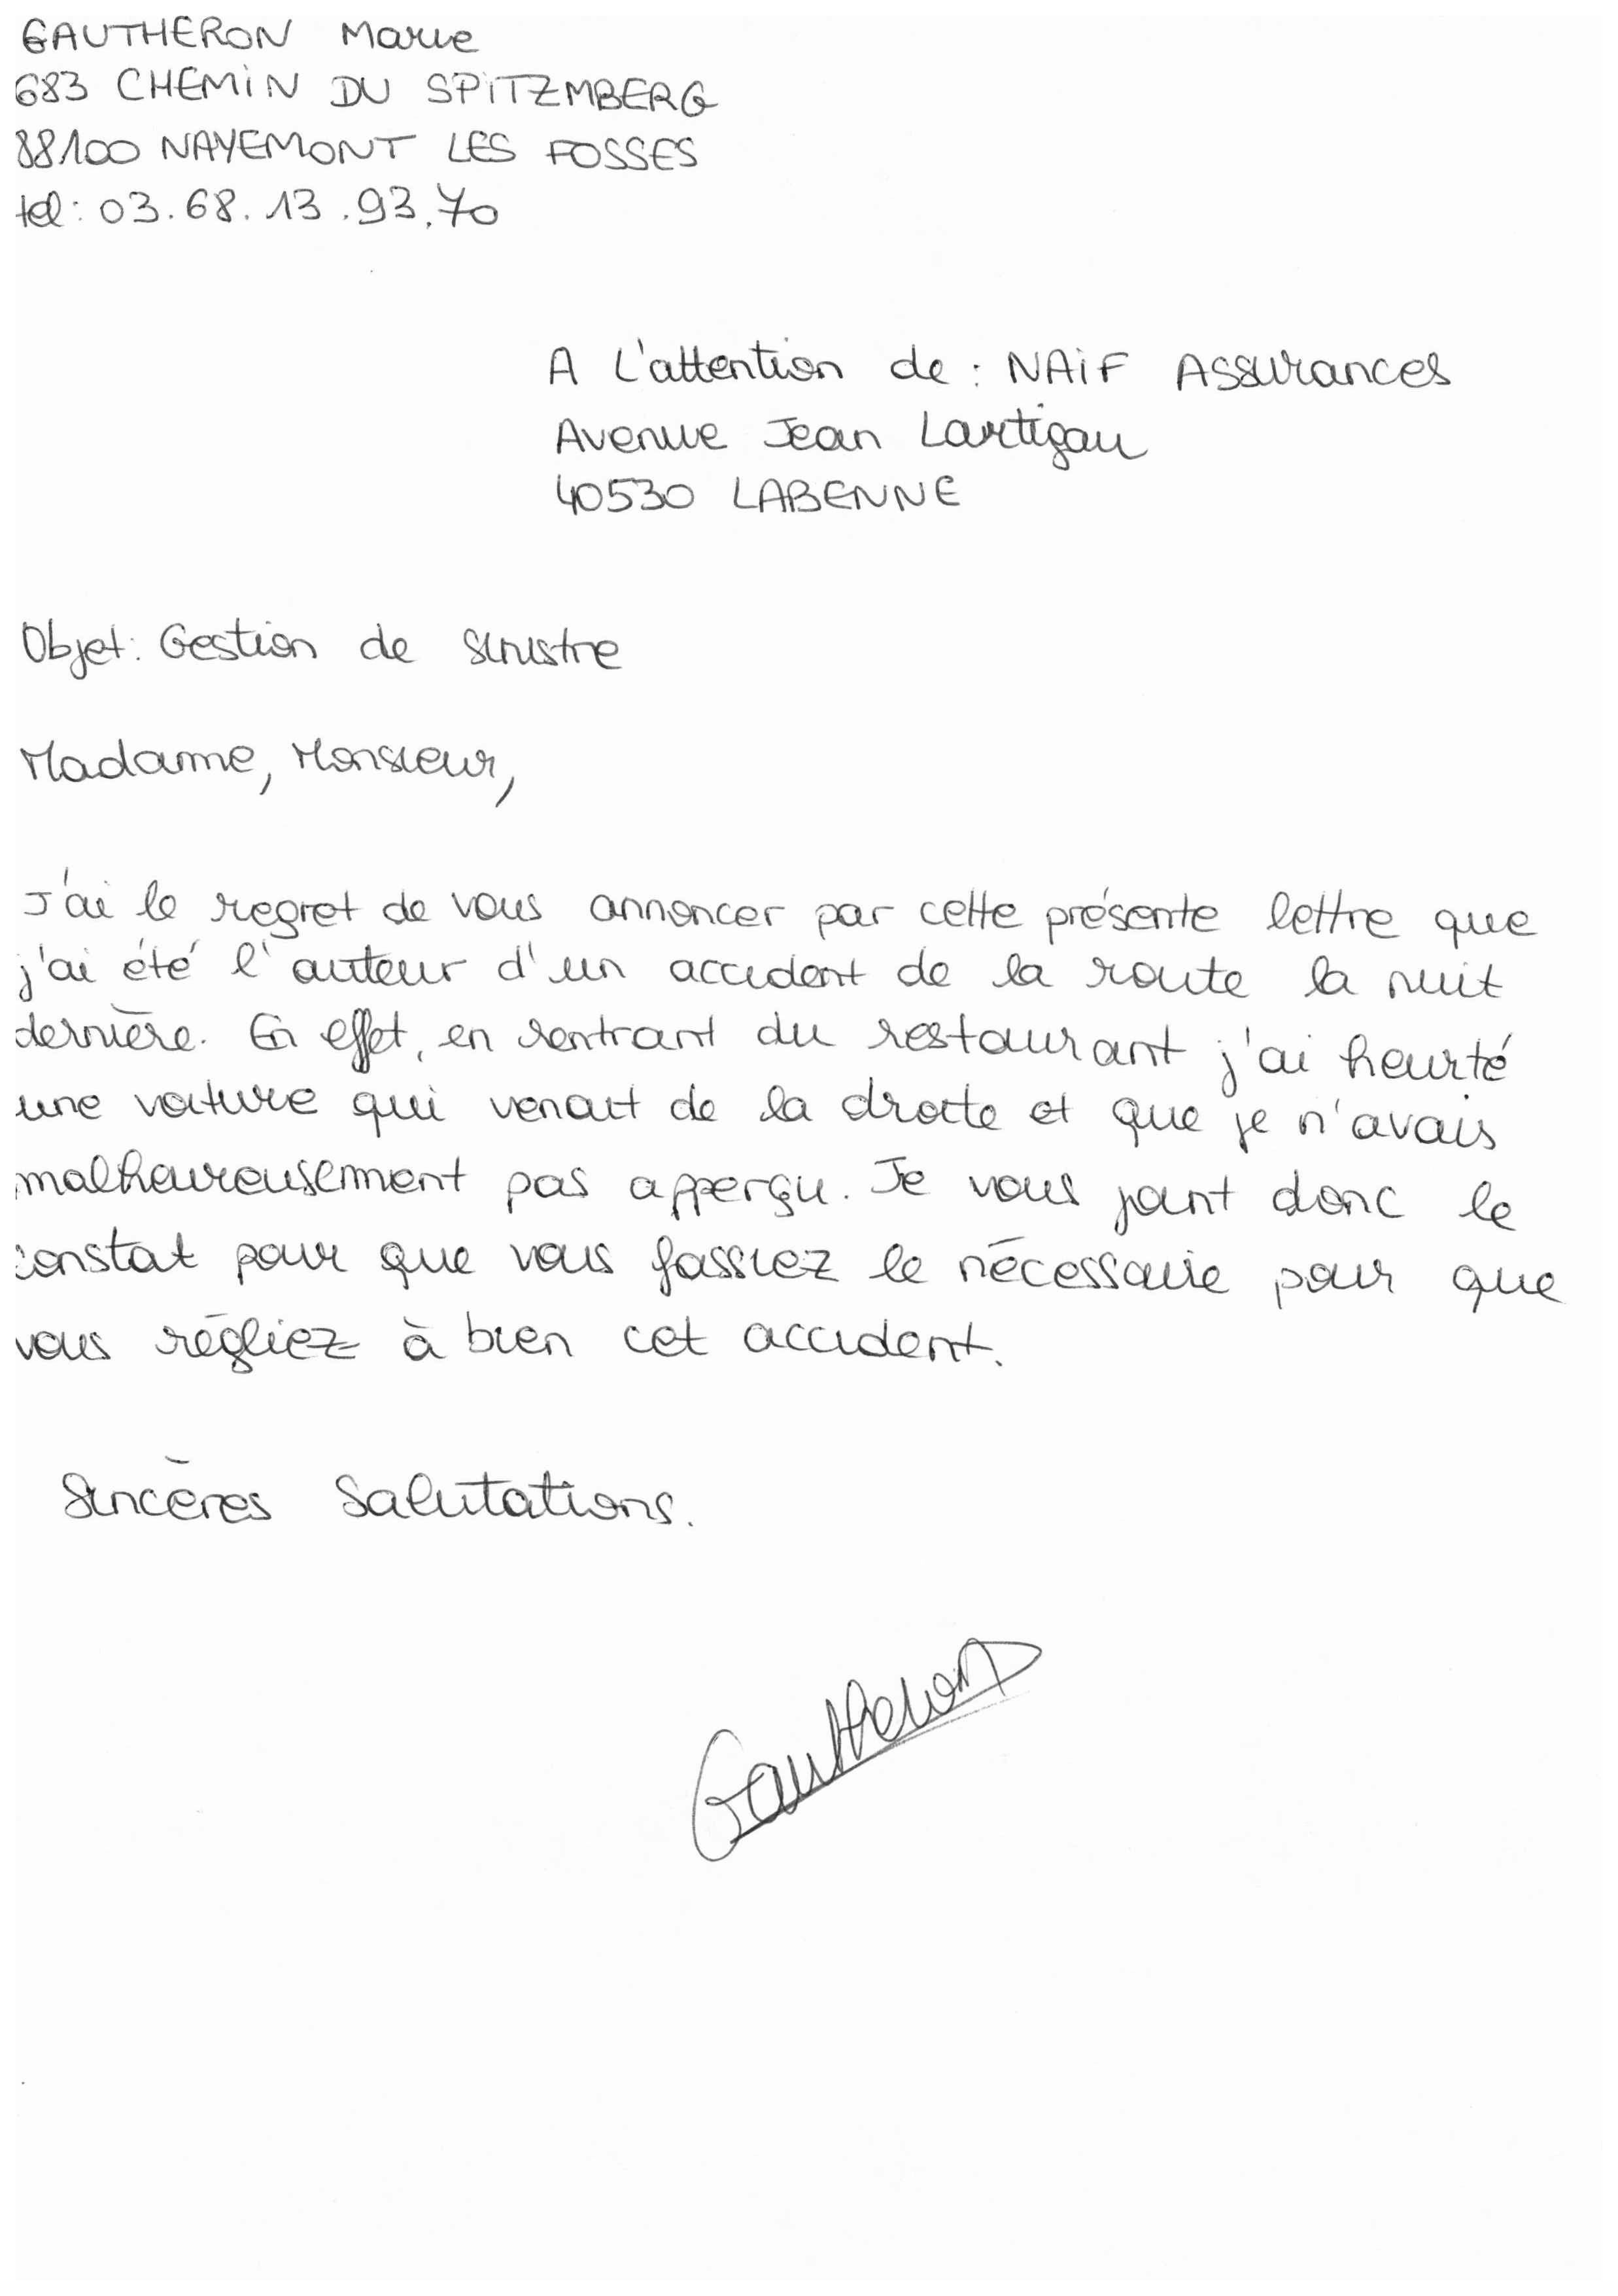 GAUTHERON Marie
683 CHEMIN DU SPITZMBERG
88100 NAYEMONT LES FOSSES
tel : 03.68.13.93.70
A L'attention de : NAIF Assurances
Avenue Jean Lartigau
40530 LABENNE
Objet : Gestion de sinistre
Madame, Monsieur,
J'ai le regret de vous annoncer par cette présente lettre que
j'ai été l'auteur d'un accident de la route la nuit
dernière. En effet, en rentrant du restaurant j'ai heurté
une voiture qui venait de la droite et que je n'avais
malheureusement pas apperçu. Je vous joint donc le
constat pour que vous fassiez le nécessaire pour que
vous régliez à bien cet accident.
Sincères Salutations.
Gautheron